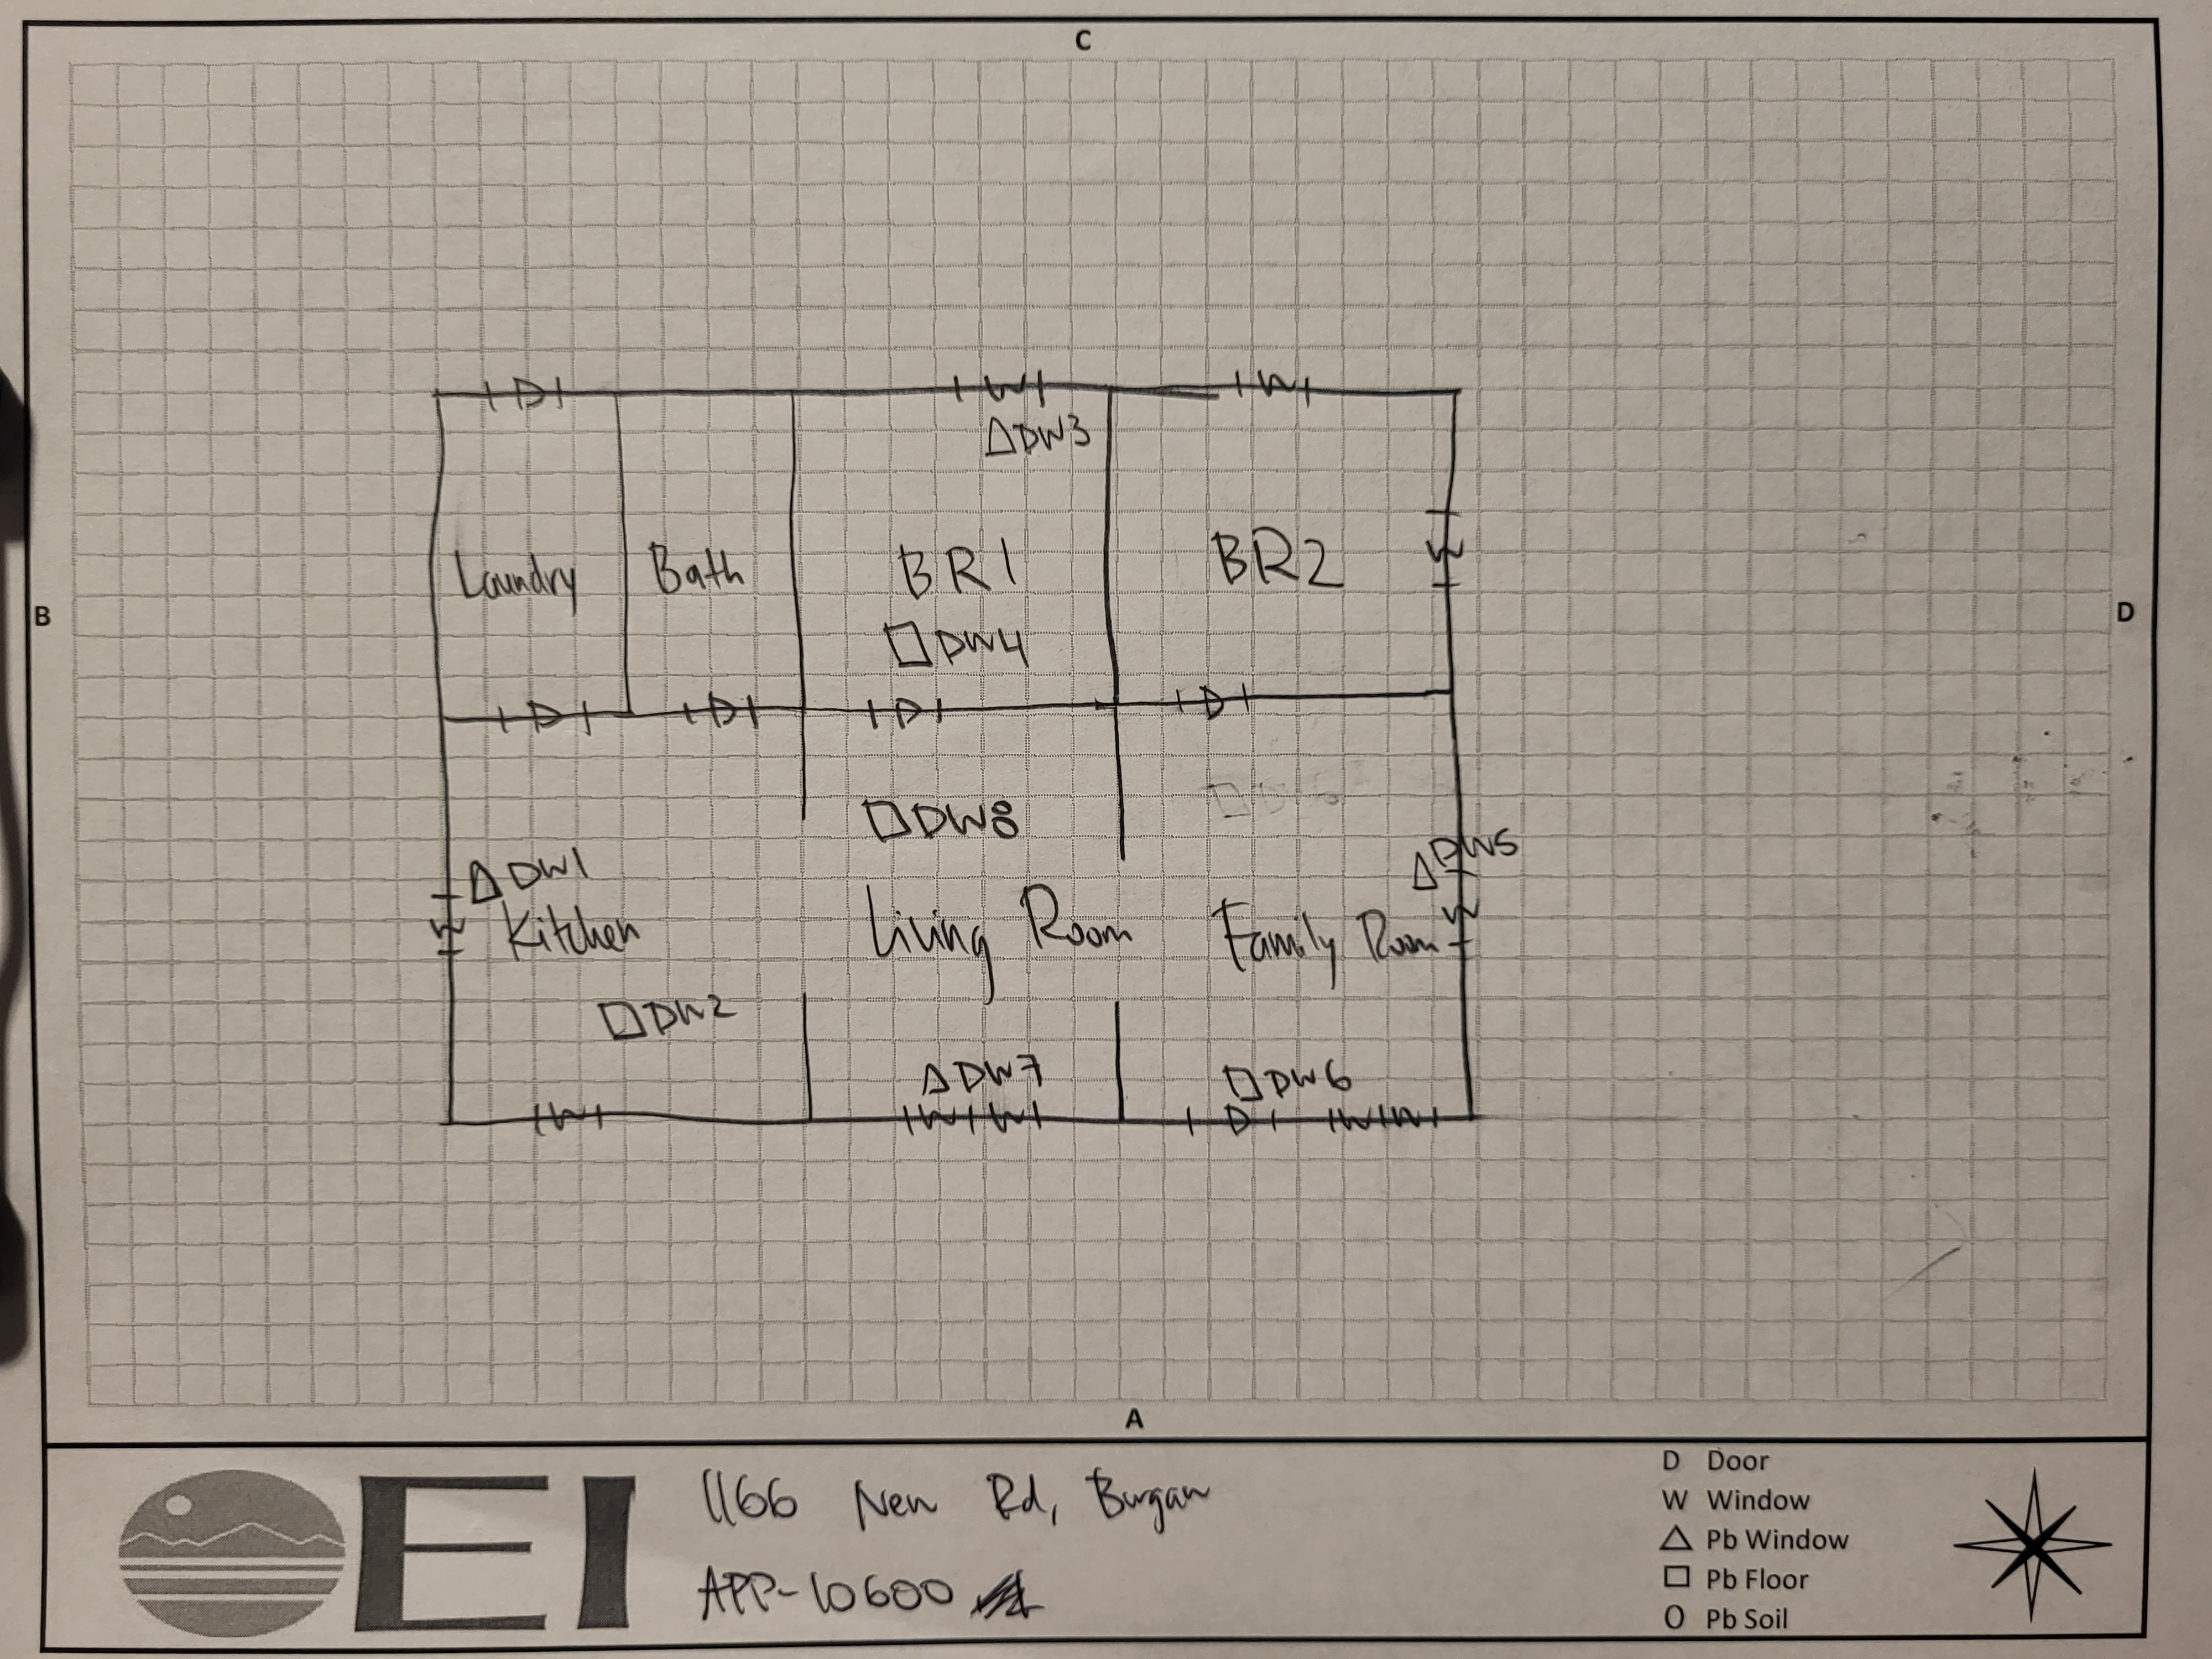 C
D W W
△DW3
Laundry Bath BR1 BR2 W
B D
□DW4
D D D D
□DW8
△DW1 △DW5
W Kitchen Living Room Family Room W
□DW2
△DW7 □DW6
W W W D W W
A
EI
1166 New Rd,
APP-10600
D Door
W Window
△ Pb Window
□ Pb Floor
O Pb Soil